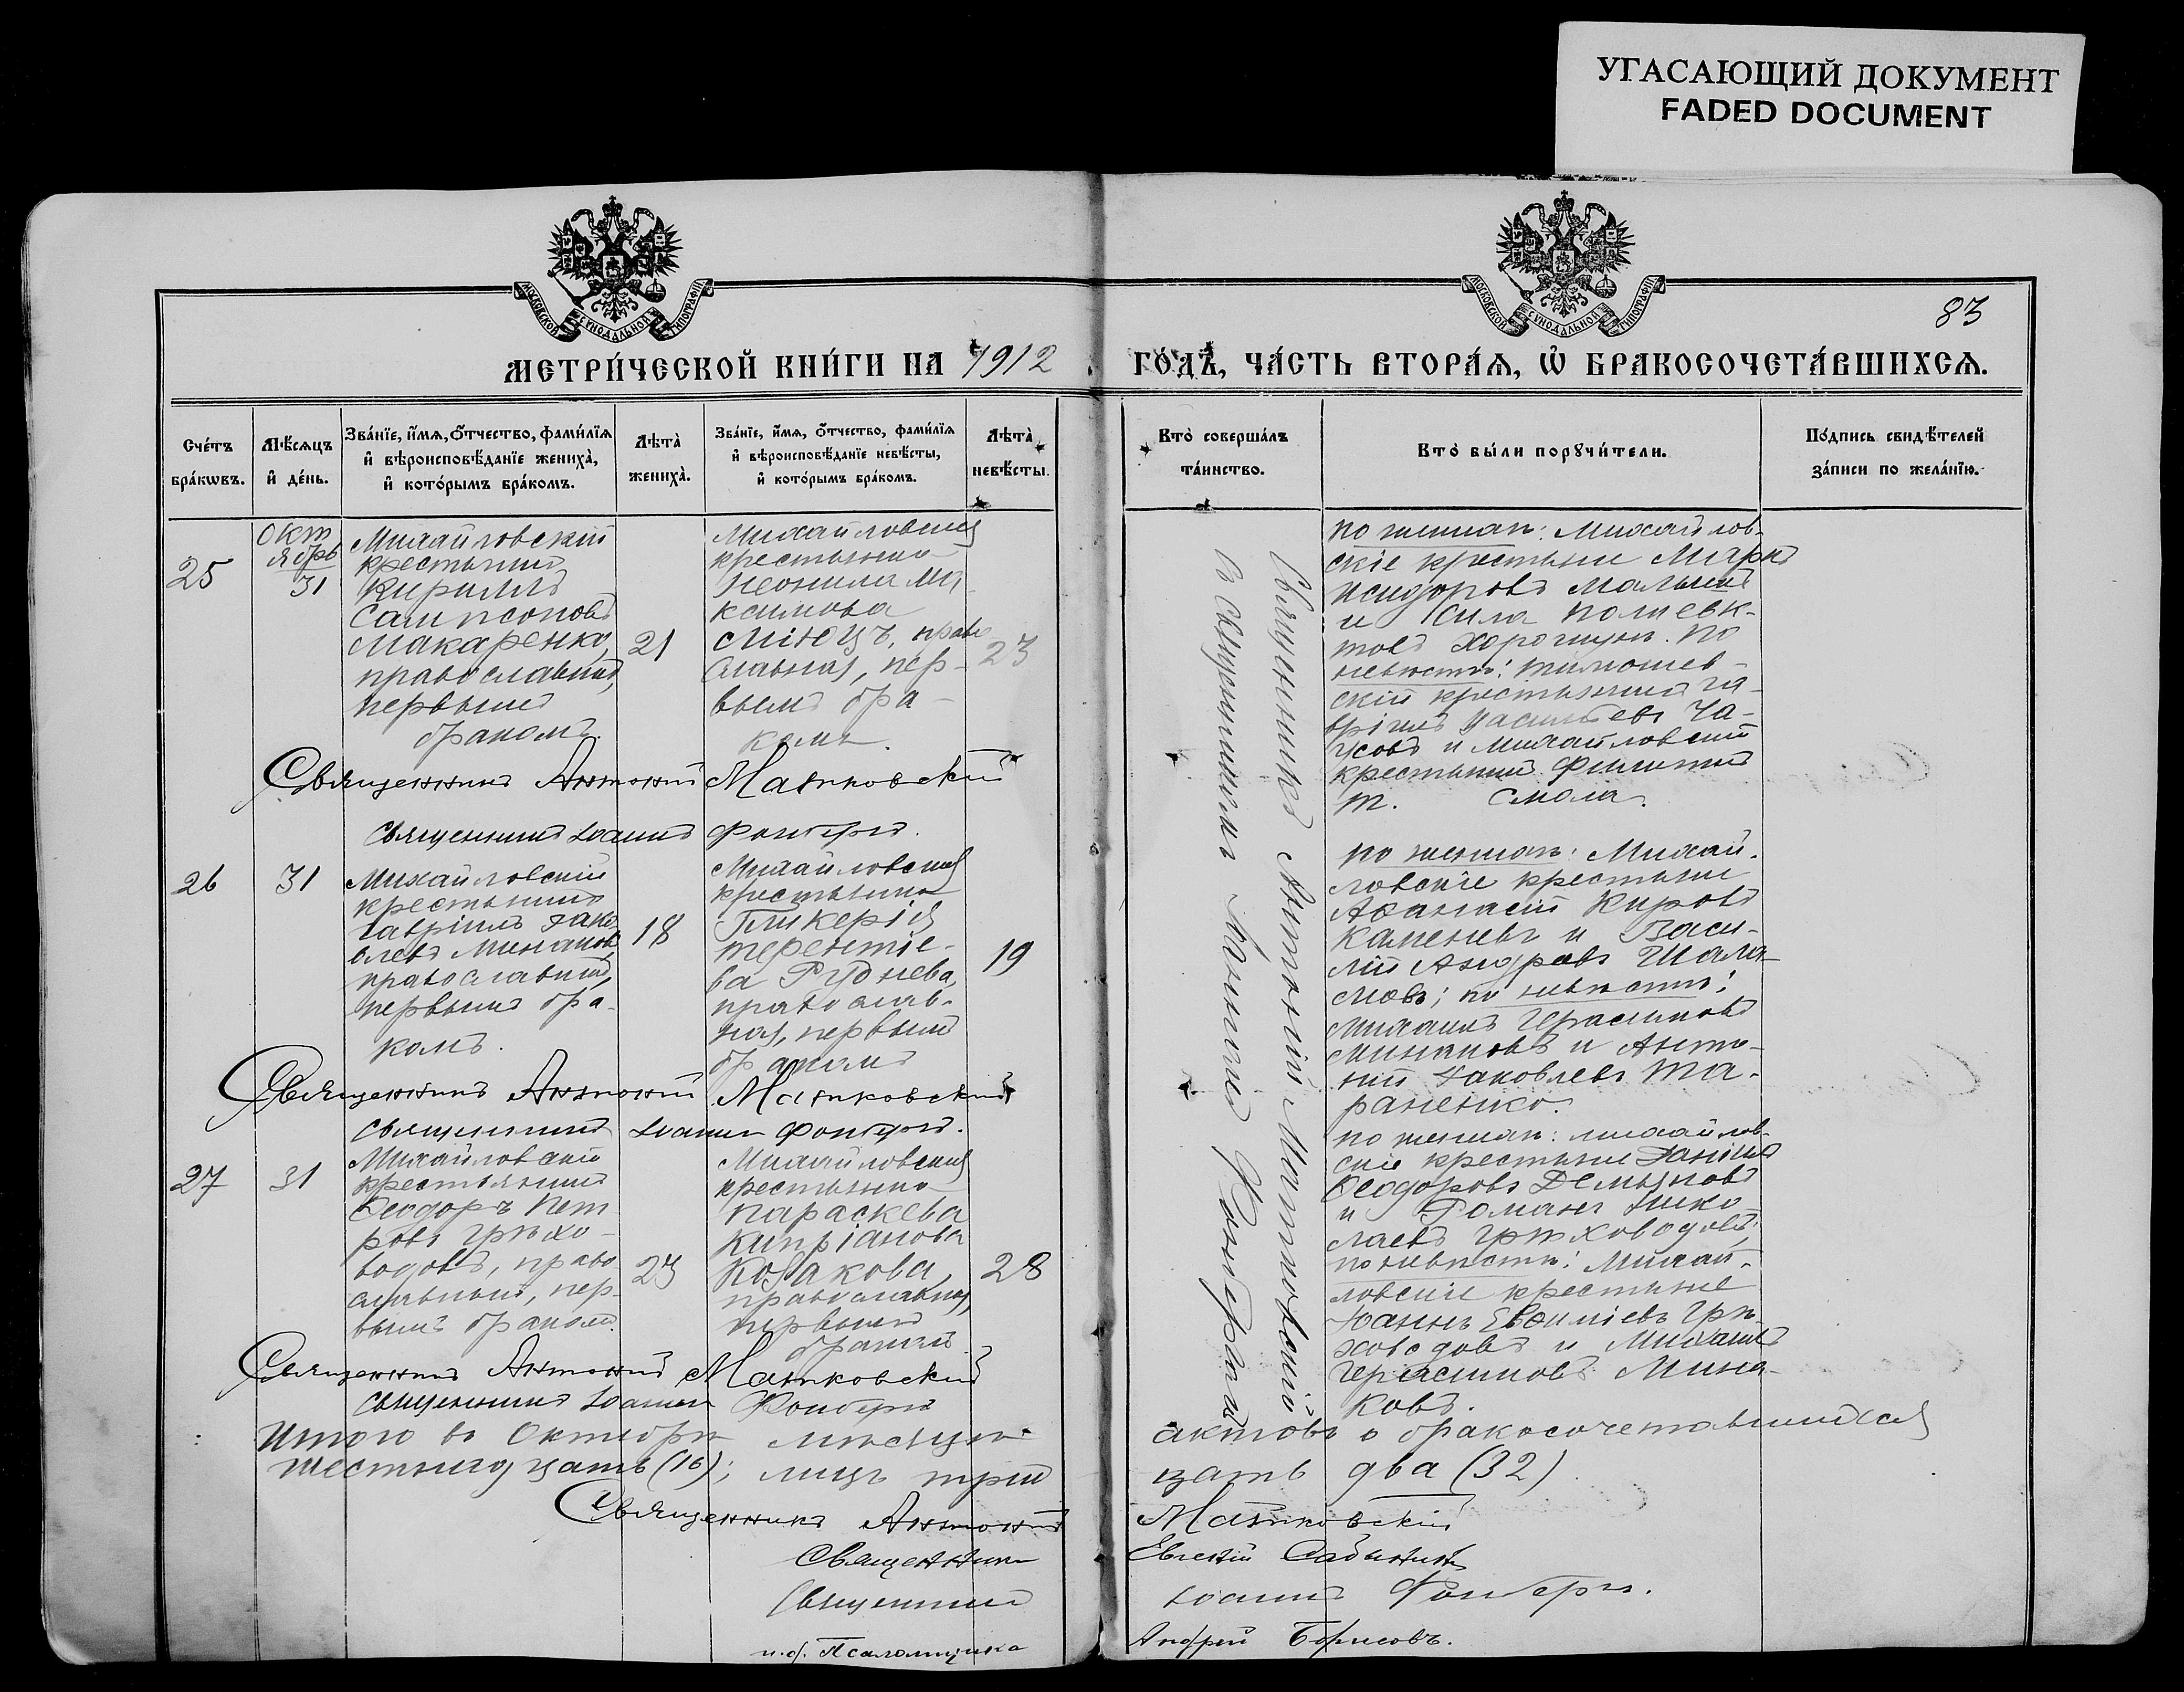 УГАСАЮЩИЙ ДОКУМЕНТ
FADED DOCUMENT
МОСКОВСКОЙ СѴНОДАЛЬНОЙ ТИПОГРАФІИ
МОСКОВСКОЙ СѴНОДАЛЬНОЙ ТИПОГРАФІИ
83
МЕТРИ́ЧЕСКОЙ КНИ́ГИ НА 1912 ГО́ДЪ, ЧА́СТЬ ВТОРА́Ѧ, Ѡ҆ БРАКОСОЧЕТА́ВШИХСѦ.
Сче́тъ
бра́кѡвъ.
Мѣ́сѧцъ
и҆ де́нь.
Зва́нїе, и҆́мѧ, ѻ҆́тчество, фами́лїѧ
и҆ вѣроисповѣ́данїе жениха̀,
и҆ кото́рымъ бра́комъ.
Лѣта̀
жениха̀.
Зва́нїе, и҆́мѧ, ѻ҆́тчество, фами́лїѧ
и҆ вѣроисповѣ́данїе невѣ́сты,
и҆ кото́рымъ бра́комъ.
Лѣта̀
невѣ́сты.
Кто̀ соверша́лъ
та́инство.
Кто̀ бы́ли порꙋчи́тели.
По́дпись свидѣ́телей
за́писи по жела́нїю.
25
Окт
ября
31
Михайловскій
крестьянинъ
Кириллъ
Сампсоновъ
Макаренко,
православный,
первымъ
бракомъ.
21
Михайловская
крестьянка
Неонила Ма
ксимова
Мінюцъ, право
славная, пер-
вымъ бра-
комъ.
23
Священникъ Антоній Матковскій
Священникъ Іоаннъ Фонбергъ.
по жениху: Михайлов-
скіе крестьяне Маркъ
Исидоровъ Малый
и Сила Полиевк-
товъ Хорошунъ. По
невѣстѣ: Тимошев-
скій крестьянинъ Га-
вріилъ Васильевъ Ча-
усовъ и Михайловскій
крестьянинъ
Т. Смола.
26
31
Михайловскій
крестьянинъ
Гавріилъ Яко
влевъ Минаковъ,
православный,
первымъ бра-
комъ.
18
Михайловская
крестьянка
Гликерія
Терентіе-
ва Руднева,
православ-
ная, первымъ
бракомъ
19
Священникъ Антоній Матковскій
Священникъ Іоаннъ Фонбергъ.
по жениху: Михай-
ловскіе крестьяне
Аѳанасій Кировъ
Каменевъ и Васи-
лій Андреевъ Шала-
мовъ; по невѣстѣ:
Михаилъ Герасимовъ
Минаковъ и Анто-
ній Яковлевъ Та-
раненко.
27
31
Михайловскій
крестьянинъ
Ѳеодоръ Пет
ровъ Грѣхо-
водовъ, право
славный, пер-
вымъ бракомъ.
23
Михайловская
крестьянка
Параскева
Кипріанова
Козакова,
православная,
первымъ
бракомъ.
28
Священникъ Антоній Матковскій
Священникъ Іоаннъ Фонбергъ
по жениху: Михайлов-
скіе крестьяне Даніилъ
Ѳеодоровъ Демьяновъ
и Романъ Нико
лаевъ Грѣховодовъ;
по невѣстѣ: Михай-
ловскіе крестьяне
Іоаннъ Евѳиміевъ Грѣ-
ховодовъ и Михаилъ
Герасимовъ Мина-
ковъ.
Священникъ Антоній Матковскій
и Священникъ Іоаннъ Фонбергъ
Итого въ Октябрѣ мѣсяцѣ актовъ о бракосочетавшихся
шестнадцать (16); лицъ тридцать два (32)
Священникъ Антоній Матковскій
Священникъ Евгеній Сабынинъ
Священникъ Іоаннъ Фонбергъ.
и. об. Псаломщика Андрей Борисовъ.